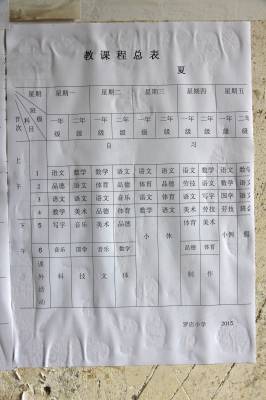 教课程总表
夏
星期 星期一 星期二 星期三 星期四 星期五
班级 科目 节次 一年级 二年级 一年级 二年级 一年级 二年级 一年级 二年级 一年级
自 习
上午
1 语文 数学 语文 数学 语文 语文 语文 数学 语文
2 品德 语文 体育 品德 体育 品德 劳技 语文 数学
3 语文 写字 音乐 语文 语文 语文 语文 写字 国学
4 数学 美术 语文 体育 数学 语文 数学 美术 劳技
下午
5 写字 音乐 美术 品德 小 休 体育 美术
6 音乐 国学 音乐 数学 品德 体育
课外活动 科 技 文 体 制 作
罗店小学 2015